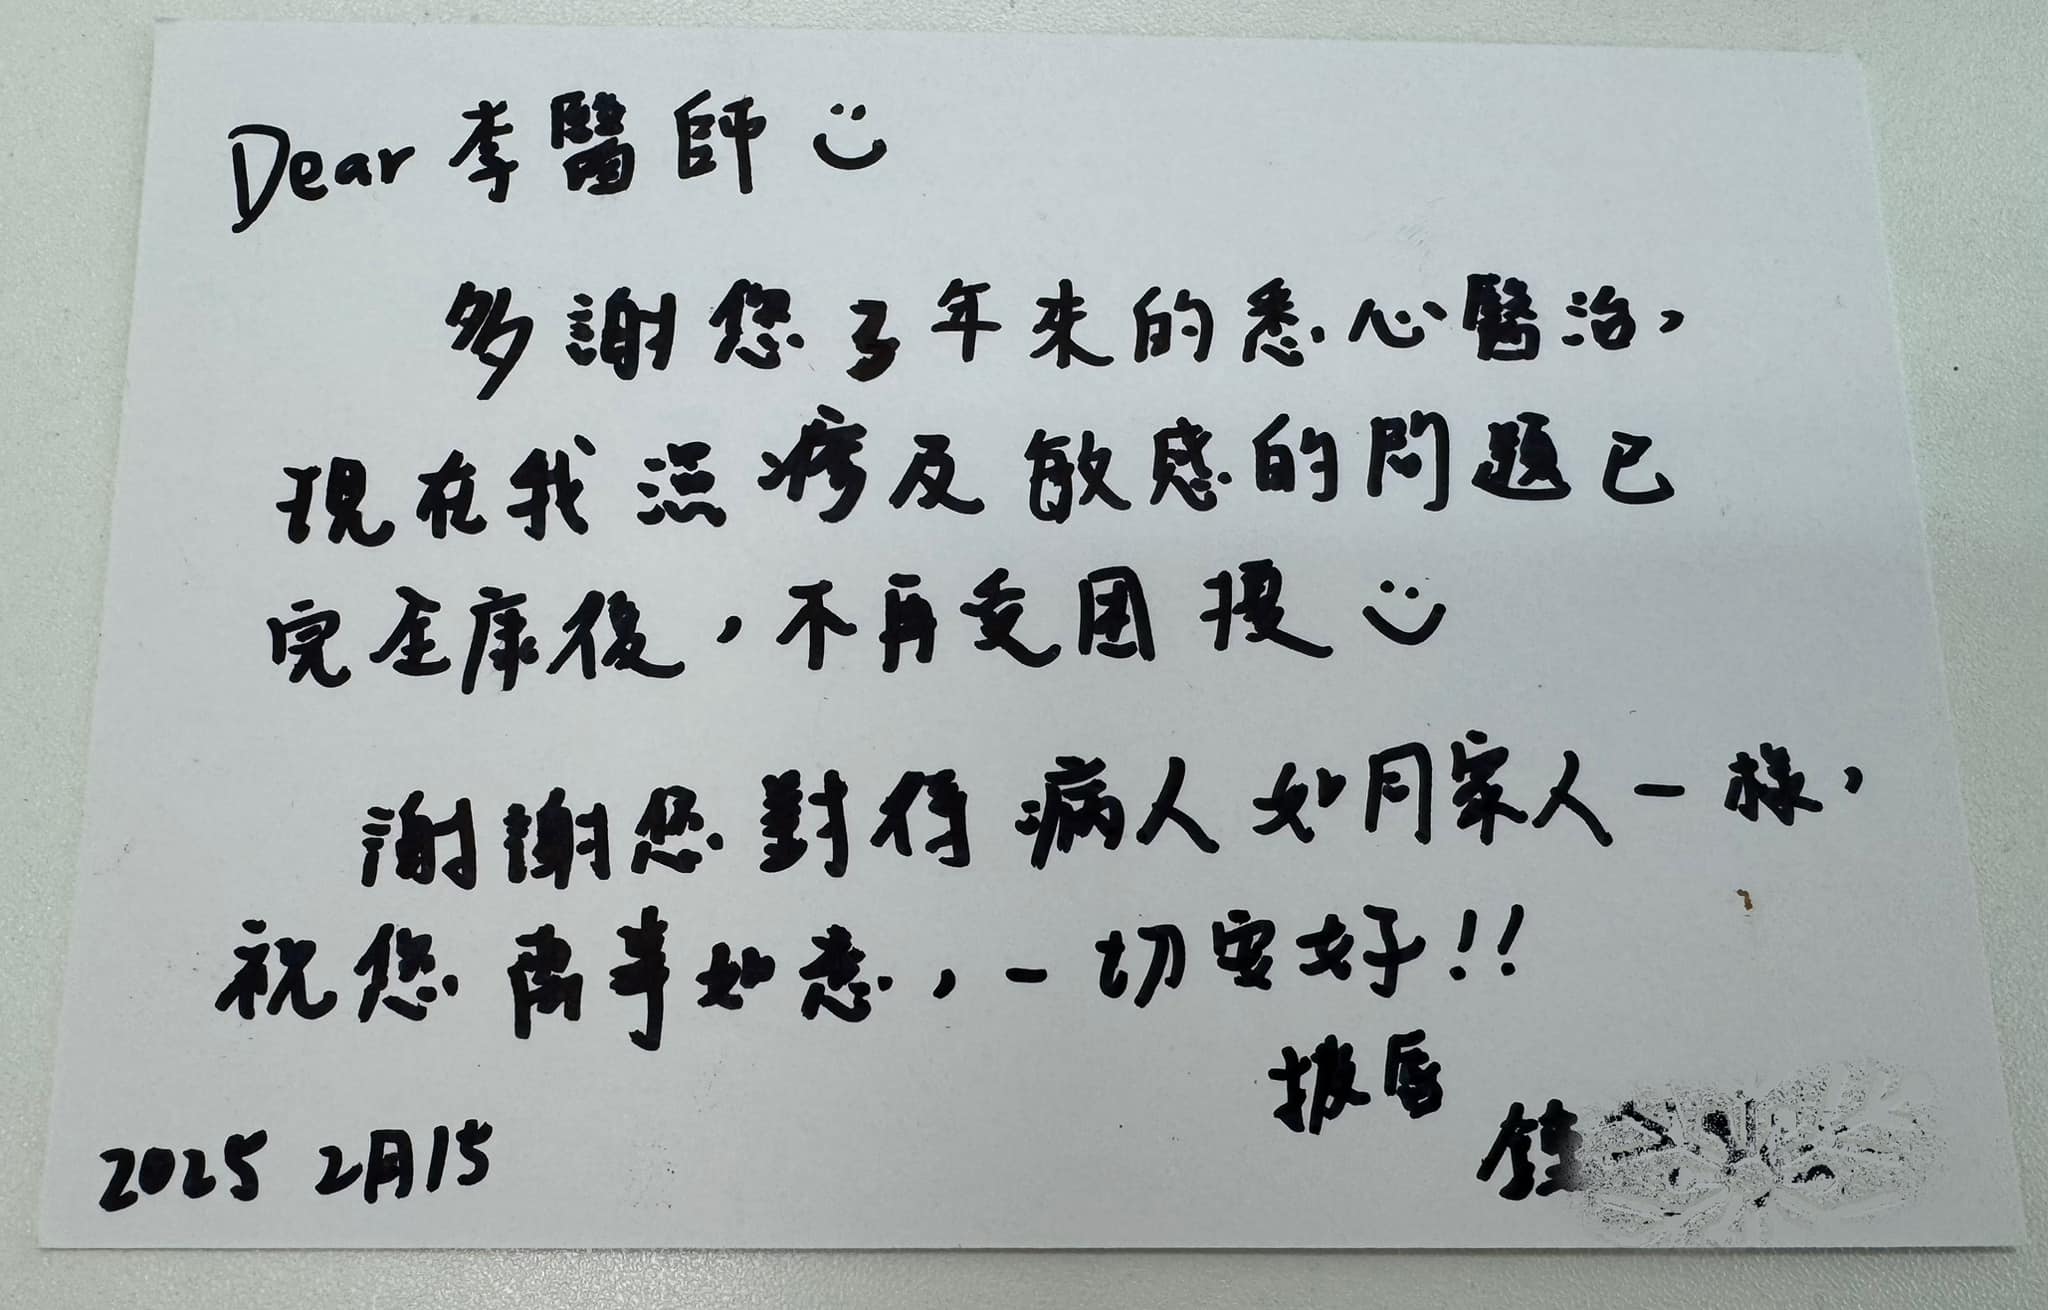 Dear 李醫師
多謝您3年來的悉心醫治,
現在我濕疹及敏感的問題已
完全康復,不再受困擾
謝謝您對待病人如同家人一樣,
祝您萬事如意,一切安好!!
2025 2月15